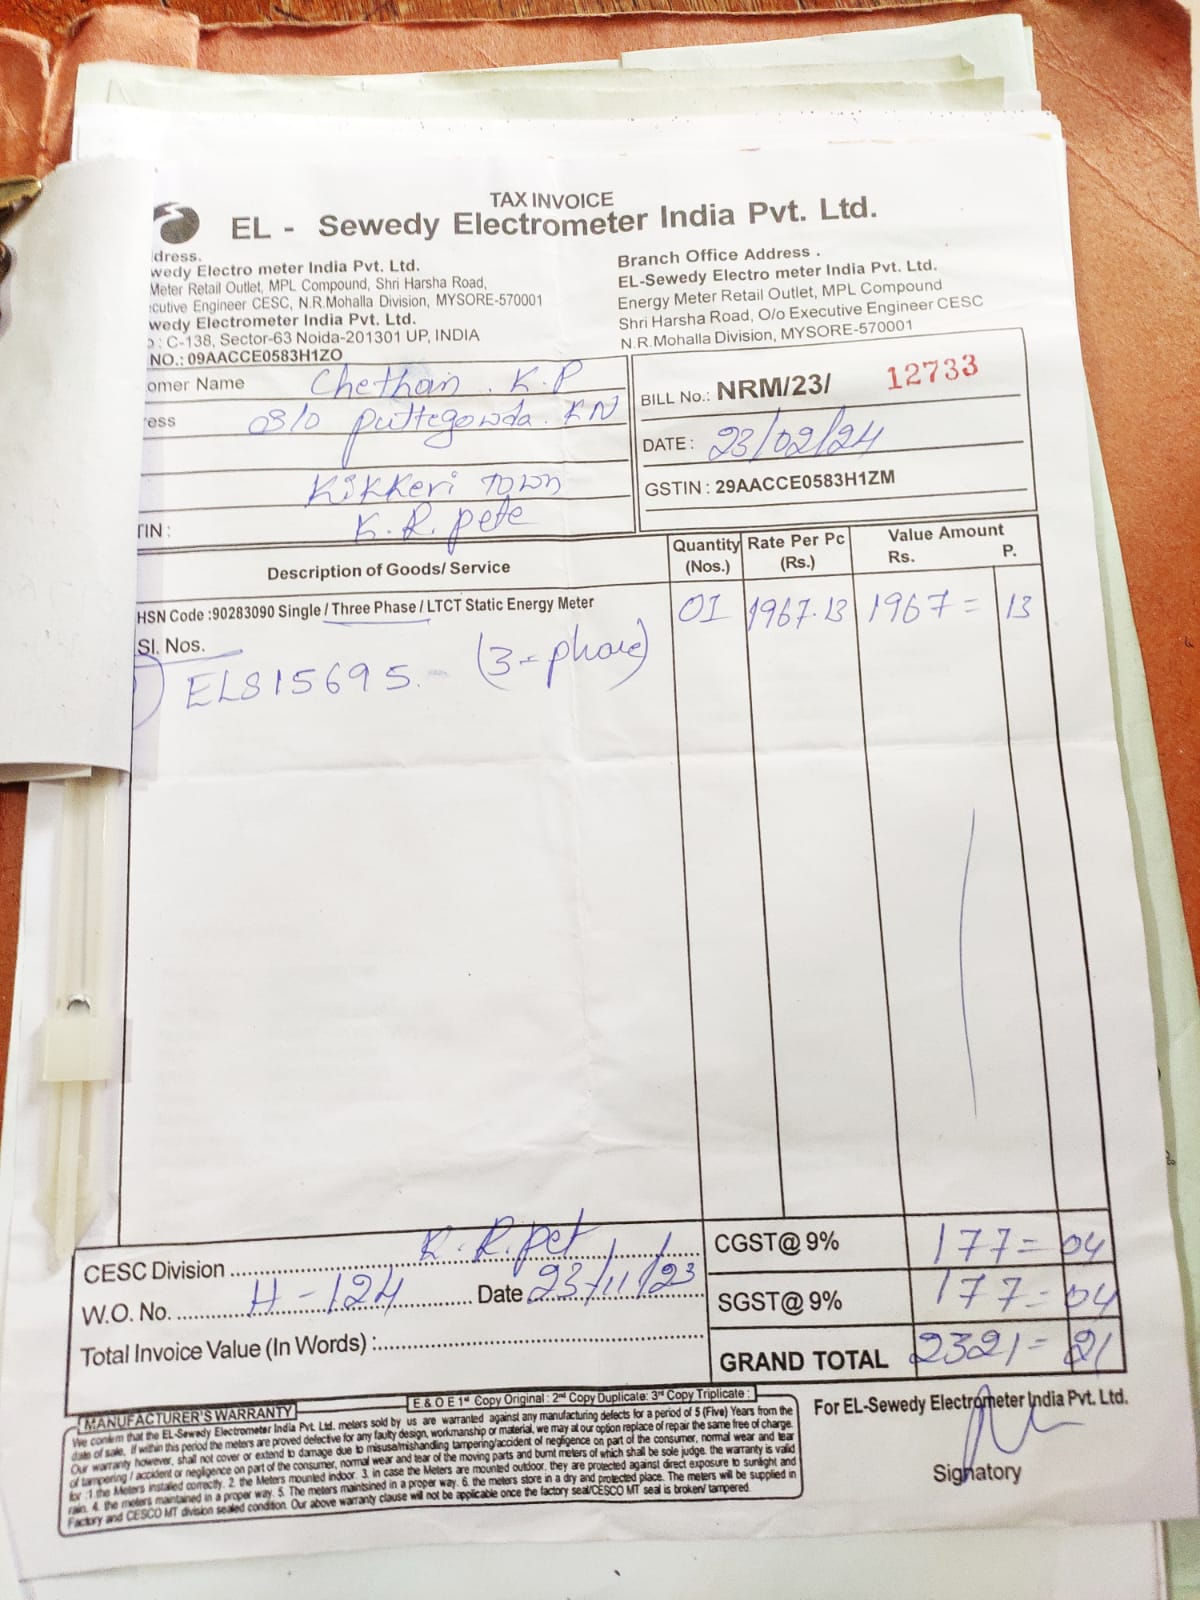 TAX INVOICE
EL - Sewedy Electrometer India Pvt. Ltd.
dress.
wedy Electro meter India Pvt. Ltd.
Meter Retail Outlet, MPL Compound, Shri Harsha Road,
cutive Engineer CESC, N.R.Mohalla Division, MYSORE-570001
wedy Electrometer India Pvt. Ltd.
: C-138, Sector-63 Noida-201301 UP, INDIA
NO.: 09AACCE0583H1ZO
Branch Office Address .
EL-Sewedy Electro meter India Pvt. Ltd.
Energy Meter Retail Outlet, MPL Compound
Shri Harsha Road, O/o Executive Engineer CESC
N.R.Mohalla Division, MYSORE-570001
omer Name Chethan . K.P
ess S/o Puttegowda. KN
Kikkeri Town
TIN : K.R.pete
BILL No.: NRM/23/ 12733
DATE : 23/02/24
GSTIN : 29AACCE0583H1ZM
Description of Goods/ Service Quantity (Nos.) Rate Per Pc (Rs.) Value Amount Rs. P.
HSN Code :90283090 Single / Three Phase / LTCT Static Energy Meter 01 1967.13 1967 = 13
Sl. Nos.
ELS15695. - (3-phase)
CESC Division K.R.pet
W.O. No. H-124 Date 23/11/23
Total Invoice Value (In Words) :
CGST@ 9% 177= 04
SGST@ 9% 177= 04
GRAND TOTAL 2321= 21
E & O E 1st Copy Original : 2nd Copy Duplicate: 3rd Copy Triplicate :
MANUFACTURER'S WARRANTY
We confirm that the EL-Sewedy Electrometer India Pvt. Ltd. meters sold by us are warranted against any manufacturing defects for a period of 5 (Five) Years from the
date of sale. If within this period the meters are proved defective for any faulty design, workmanship or material, we may at our option replace of repair the same free of charge.
Our warranty however, shall not cover or extend to damage due to misuse/mishanding tampering/accident of negligence on part of the consumer, normal wear and tear
of tampering / accident or negligence on part of the consumer, normal wear and tear of the moving parts and burnt meters of which shall be sole judge. the warranty is valid
for :1.the Meters installed correctly. 2. the Meters mounted indoor. 3. in case the Meters are mounted outdoor, they are protected against direct exposure to sunlight and
rain. 4. the meters maintained in a proper way. 5. The meters maintsined in a proper way. 6. the meters store in a dry and protected place. The meters will be supplied in
Factory and CESCO MT division sealed condition. Our above warranty clause will not be applicable once the factory seal/CESCO MT seal is broken/ tampered.
For EL-Sewedy Electrometer India Pvt. Ltd.
Signatory